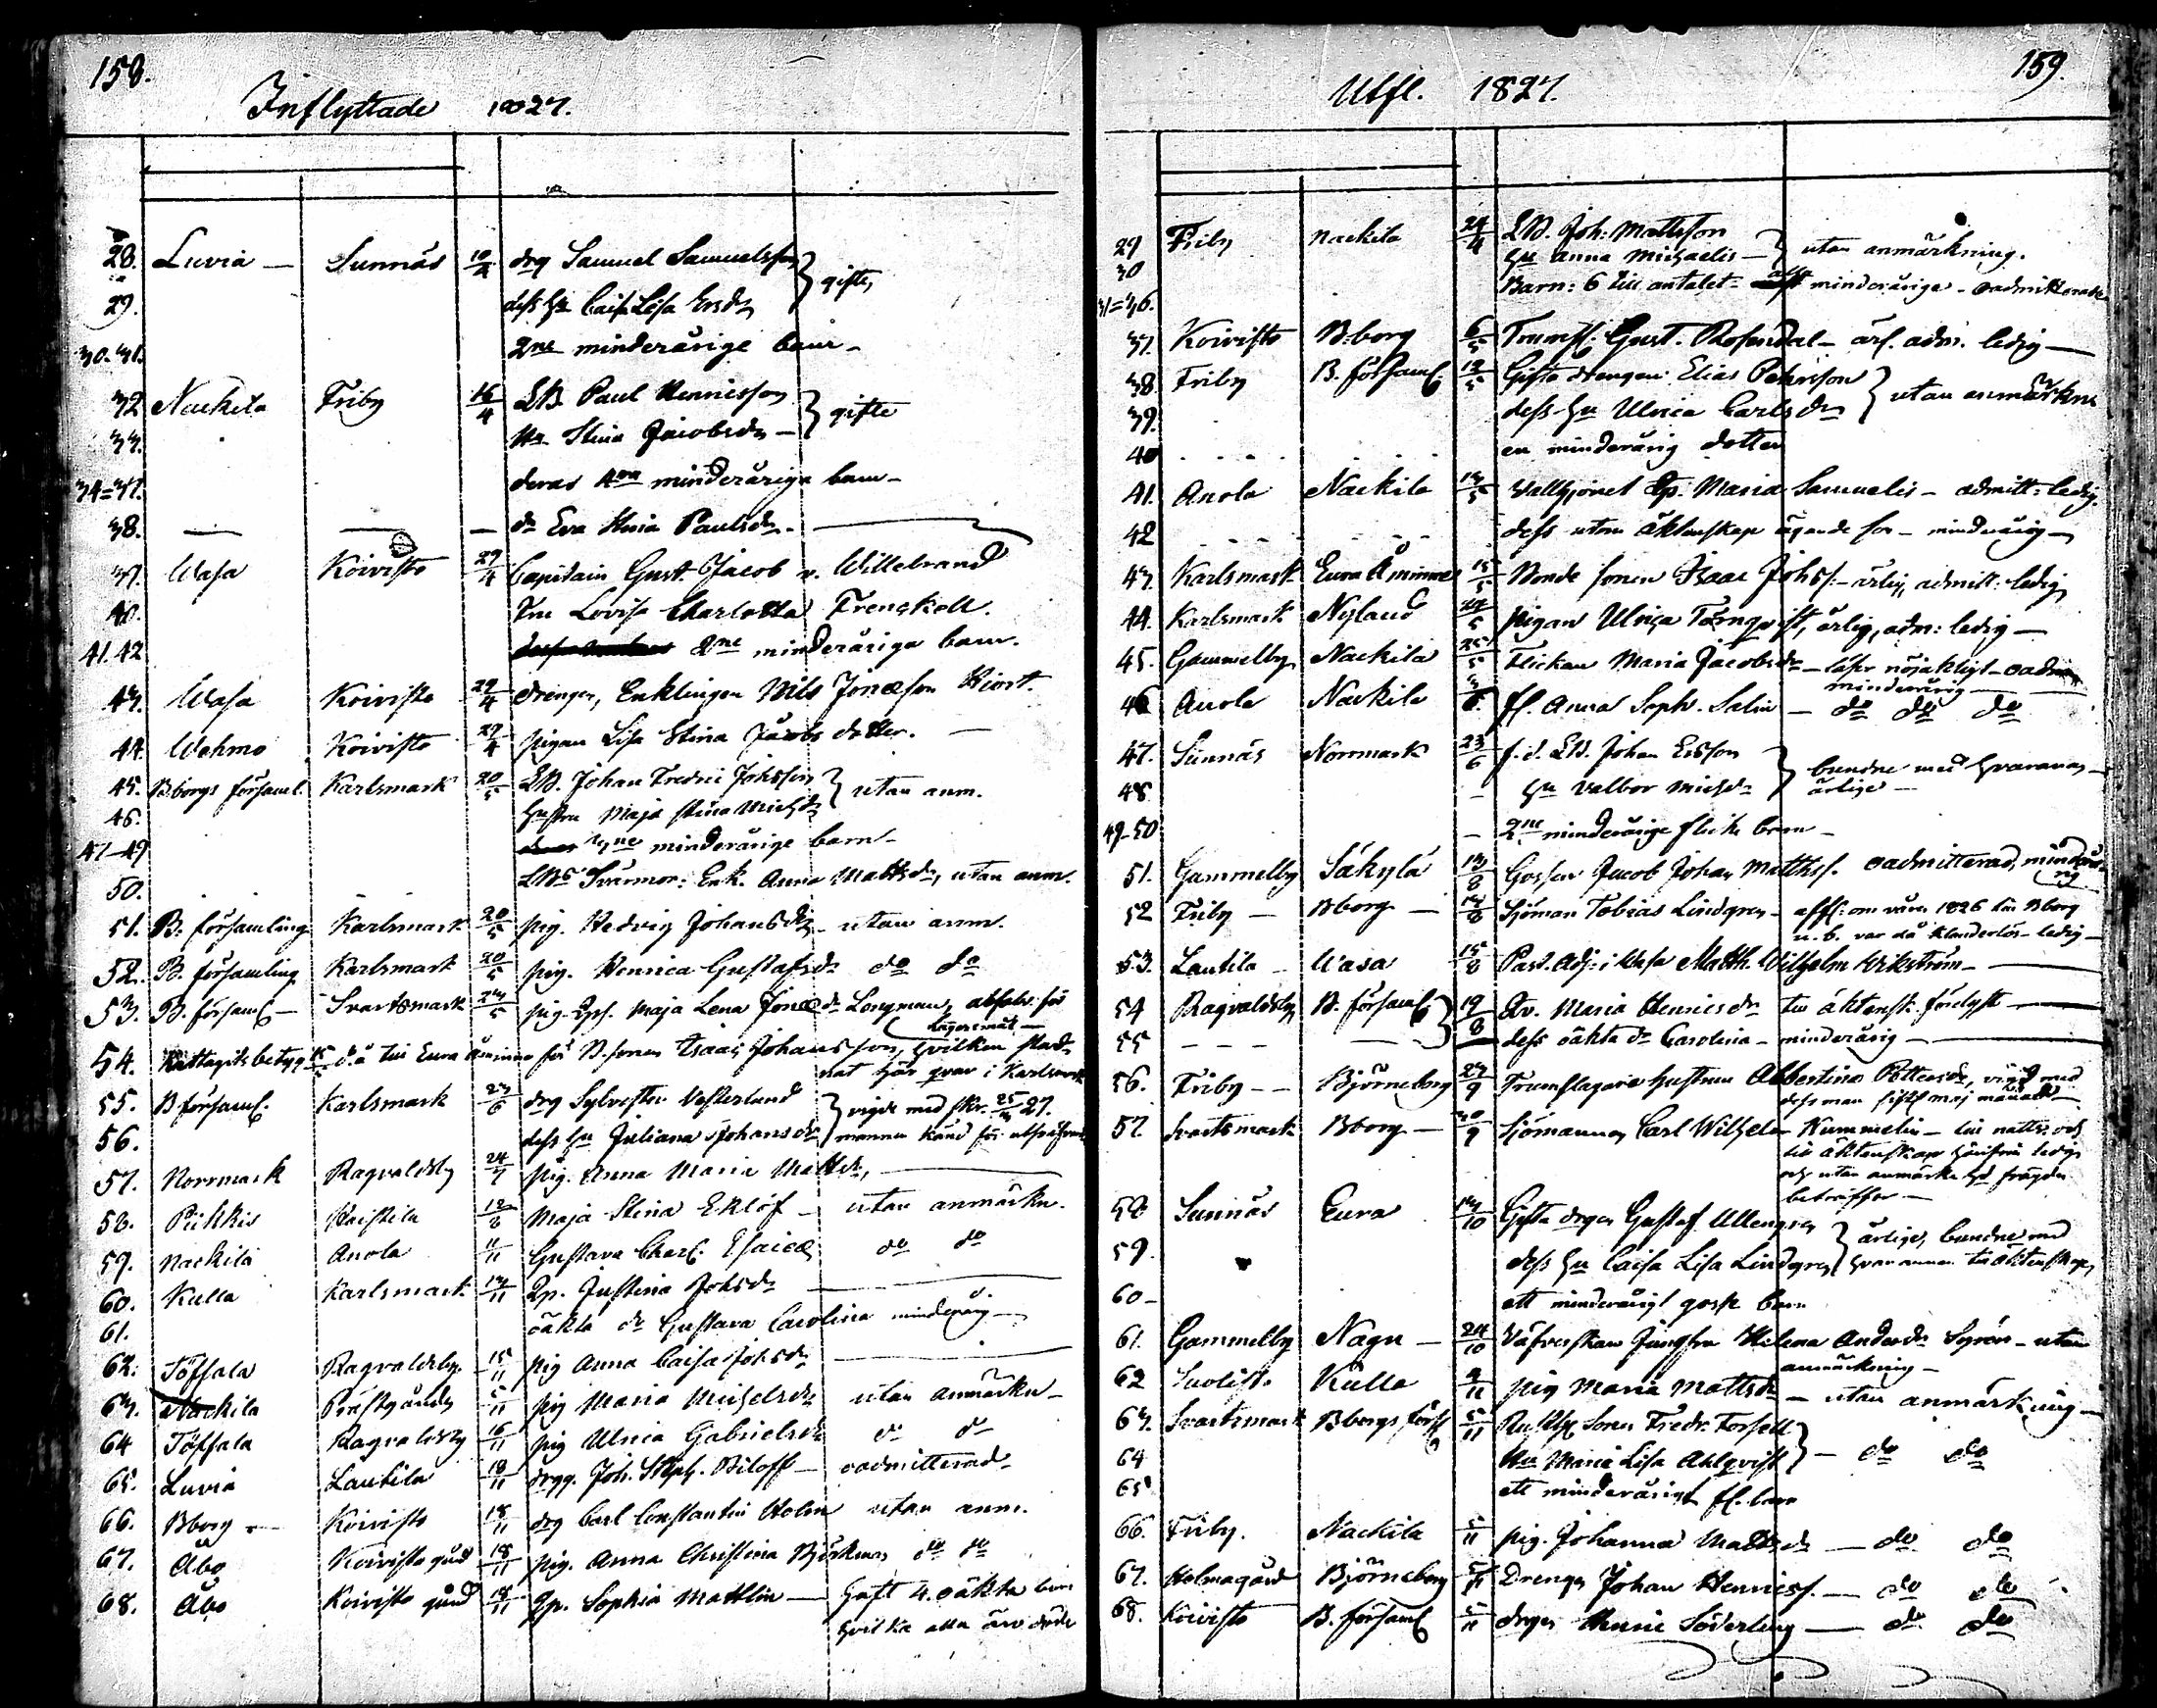 158.
Inflyttade 1827.
28. Luvia — Sunnäs 10/4 drg Samuel Samuelsson } gifte,
29. dess hu Caisa Lisa Ersdr
30-31. 2ne minderårige barn -
32 Nackila Friby 16/4 LB. Paul Henricsson } gifte
33. Hu Stina Jacobsdr —
34=37. deras 4ra minderåriga barn -
38. — — — dr Eva Stina Paulsdr. —
39. Wasa Koivisto 29/4 Capitain Gust. Jacob v. Willebrand
40. Fru Lovisa Charlotta Frenckell.
41.42 2ne minderåriga barn.
43. Wasa Koivisto 29/4 drengen, Enklingen Nils Jonæson Hiort.
44. Wehmo Koivisto 29/4 pigan Lisa Stina Jacobs dotter. —
45. Bborgs församl. Karlsmark 20/5 LB. Johan Fredric Johsson } utan anm.
46. hustru Maja Stina Michsdr
47-49 3ne minderårige barn -
50. LBs Svärmor: Enk. Anna Mattsdr, utan anm.
51. B. församling Karlsmark 20/5 pig. Hedvig Johansdr - utan anm.
52. B. församling Karlsmark 20/5 pig. Henrica Gustafsdr do do
53. B. församl — Svartsmark 23/5 pig. Qps. Maja Lena Jonædr Longman, absolv. för
lägersmål —
54. betyg 15/5 då till Eura Åminne för B. sonen Isaac Johansson, hvilken stad-
nat här qvar i Karlsmark
55. B församl. Karlsmark 23/6 drg Sylvester Vesterlund } vigde med skr. 25/3 27.
56. dess hu Juliana Johansdr mannen känd för
57. Norrmark Ragvaldsby 24/7 pig. Anna Maria Mattsdr, —
58. Pikkis 12/8 Maja Stina Eklöf — utan anmärkn.
59. Nackila Anola 11/11 Gustava Charl. Esaiædr do do
60. Kulla Karlsmark 13/11 Qp. Justina Johsdr —
61. oäkta dr Gustava Carolina minderårig —
62. Töffsala Ragvaldsby 15/11 pig Anna Caisa Johsdr —
63. Nackila Prästgården 5/11 pig Maria Michelsdr utan anmärkn —
64 Töffsala Ragvaldsby 16/11 pig Ulrica Gabrielsdr do do
65. Luvia Lautila 18/11 drgg. Joh. Steph. Biloff — oadmitterad
66. Bborg — Koivisto 18/11 drg Carl Constantin Holm utan anm.
67. Åbo Koivisto gård 18/11 pig. Anna Christina Björkman do do
68. Åbo Koivisto gård 18/11 Qp. Sophia Mattlin — haft 4. oäkta barn
hvilka alla äro döde
159.
Utfl. 1827.
29 Friby Nackila 24/4 LB. Joh: Mattsson } utan anmärkning.
30 hu Anna Michaelis —
31=36. Barn: 6 till antalet = alla minderårige - oadmitterade
37. Koivisto B:borg 6/5 Trumsl: Gust. Rosendal - ärl. adm. ledig —
38. Friby B. församl 12/5 Gifte drengen Elias Pehrsson } utan anmärkn
39. dess hu Ulrica Carlsdr
40 en minderårig dotter
41. Anola Nackila 13/5 Vallhjonet Qp. Maria Samuelis - admitt: ledig.
42 dess utom äktenskap ägande son - minderårig —
43. Karlsmark Eura Åminne 15/5 Bonde sonen Isaac Johss: - ärlig, admitt: ledig
44. Karlsmark Nyland 24/5 pigan Ulrica Törnqvist, ärlig, adm: ledig —
45. Gammelby Nackila 25/5 Flickan Maria Jacobsdr — läser nöjaktigt - oadm
minderårig —
46 Anola Nackila 3/6. fl. Anna Soph. Salin — do do do
47. Sunnäs Norrmark 23/6 f.d. LB. Johan Ersson } bundne med hvarannan —
48 — hu Valbor Michsdr ärlige —
49-50 — 2ne minderårige flicke barn —
51. Gammelby Säkylä 13/8 Gossen Jacob Johan Matthss. oadmitterad, minderå-
rig
52 Friby — Bborg — 14/8 Sjöman Tobias Lindgren - affl: om våren 1826 till Bborg
n. b. var då klanderlös - ledig —
53. Lautila — Wasa 15/8 Past. Adj: i Wasa Matth. Wilhelm Wikström —
54 Ragvaldsby B. församl 19/8 Qv. Maria Henricsdr till äktensk. förelyst —
55 — — — dess oäkta dr Carolina - minderårig —
56. Friby — Björneborg 24/9 Trumslagare hustrun Albertina Pettersdr, vigd med
dess man sistl. maj månad —
57. Svartsmark Bborg — 30/9 Sjömannen Carl Wilhelm Kummelin — till nattv. och
till äktenskap härifrån ledig
och utan anmärkn. hvad frägden
beträffar —
58 Sunnäs Eura 14/10 Gifta drgen Gustaf Ullengren } ärlige, bundne med
59. dess hu Caisa Lisa Lindgren hvarannan till äktenskap,
60- ett minderårigt gosse barn
61. Gammelby Nagu — 24/10 Väfverskan Jungfru Helena Andersdr Syrén - utan
anmärkning —
62 Kulla 4/11 pig Maria Mattsdr — utan anmärkning —
63. Svartsmark Bborgs förs 5/11 Rusth. sonen Fredr. Forsell } — do do
64 Hu Maria Lisa Ahlqvist
65 ett minderårigt fl. barn
66. Friby. Nackila 5/11 pig. Johanna Mattsdr — do do
67. Holmagård Björneborg 5/11 Drengen Johan Henricss. — do do
68. Koivisto B. församl 5/11 drgen Henric Söderling — do do